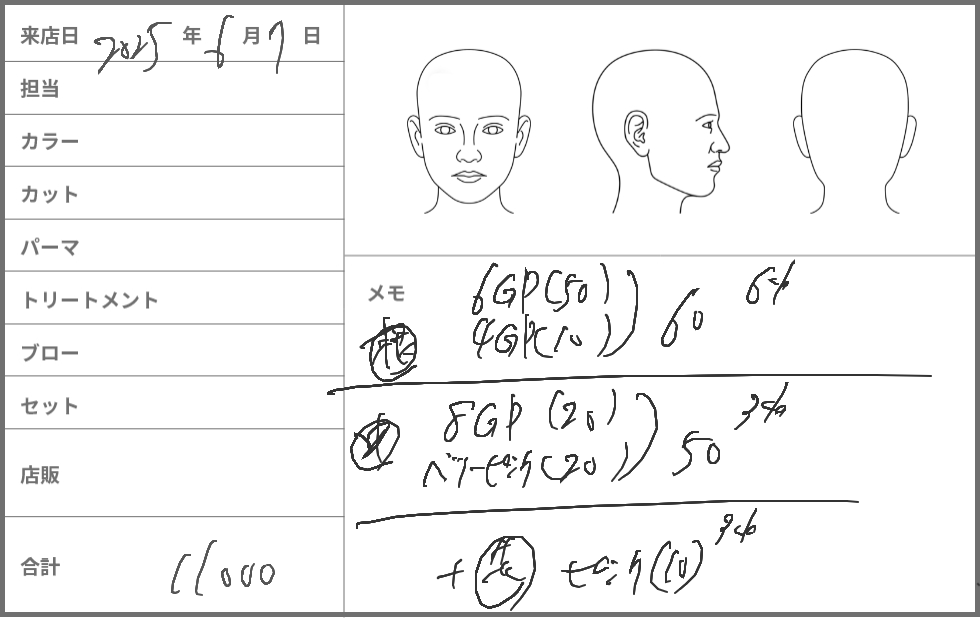 来店日 2025 年 6 月 7 日
担当
カラー
カット
パーマ
トリートメント
ブロー
セット
店販
合計 11000
メモ
6GP(50)
4GP(10)
60 6%
8GP (20)
ベリーピンク(20)
50 3%
+ ピンク(10) 3%